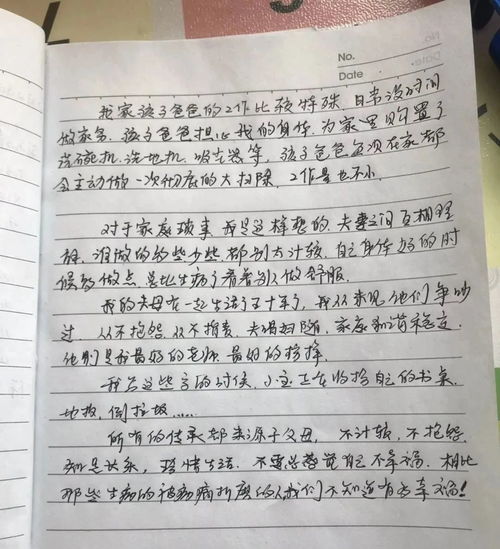 No.
Date
我家孩子爸爸的工作比较特殊,日常没时间
做家务。孩子爸爸担心我的身体,为家里购置了
洗碗机、洗地机、吸尘器等,孩子爸爸每次在家都
会主动做一次彻底的大扫除,工作量也不小。
对于家庭琐事,我是这样想的,夫妻之间互相理
解,谁做的多些少些都别太计较,自己身体好的时
候多做点,总比生病了看着别人做舒服。
我的父母在一起生活了五十年了,我从未见他们争吵
过,从不抱怨,从不指责,夫唱妇随,家庭和谐稳定,
他们是我最好的老师,最好的榜样。
我在这些字的时候,小宝正在收拾自己的书桌,
地板,倒垃圾……
所有的传承都来源于父母,不计较,不抱怨,
知足长乐,珍惜生活,不要总觉着自己不幸福,相比
那些生病的被病痛折磨的人我们不知道有多幸福!